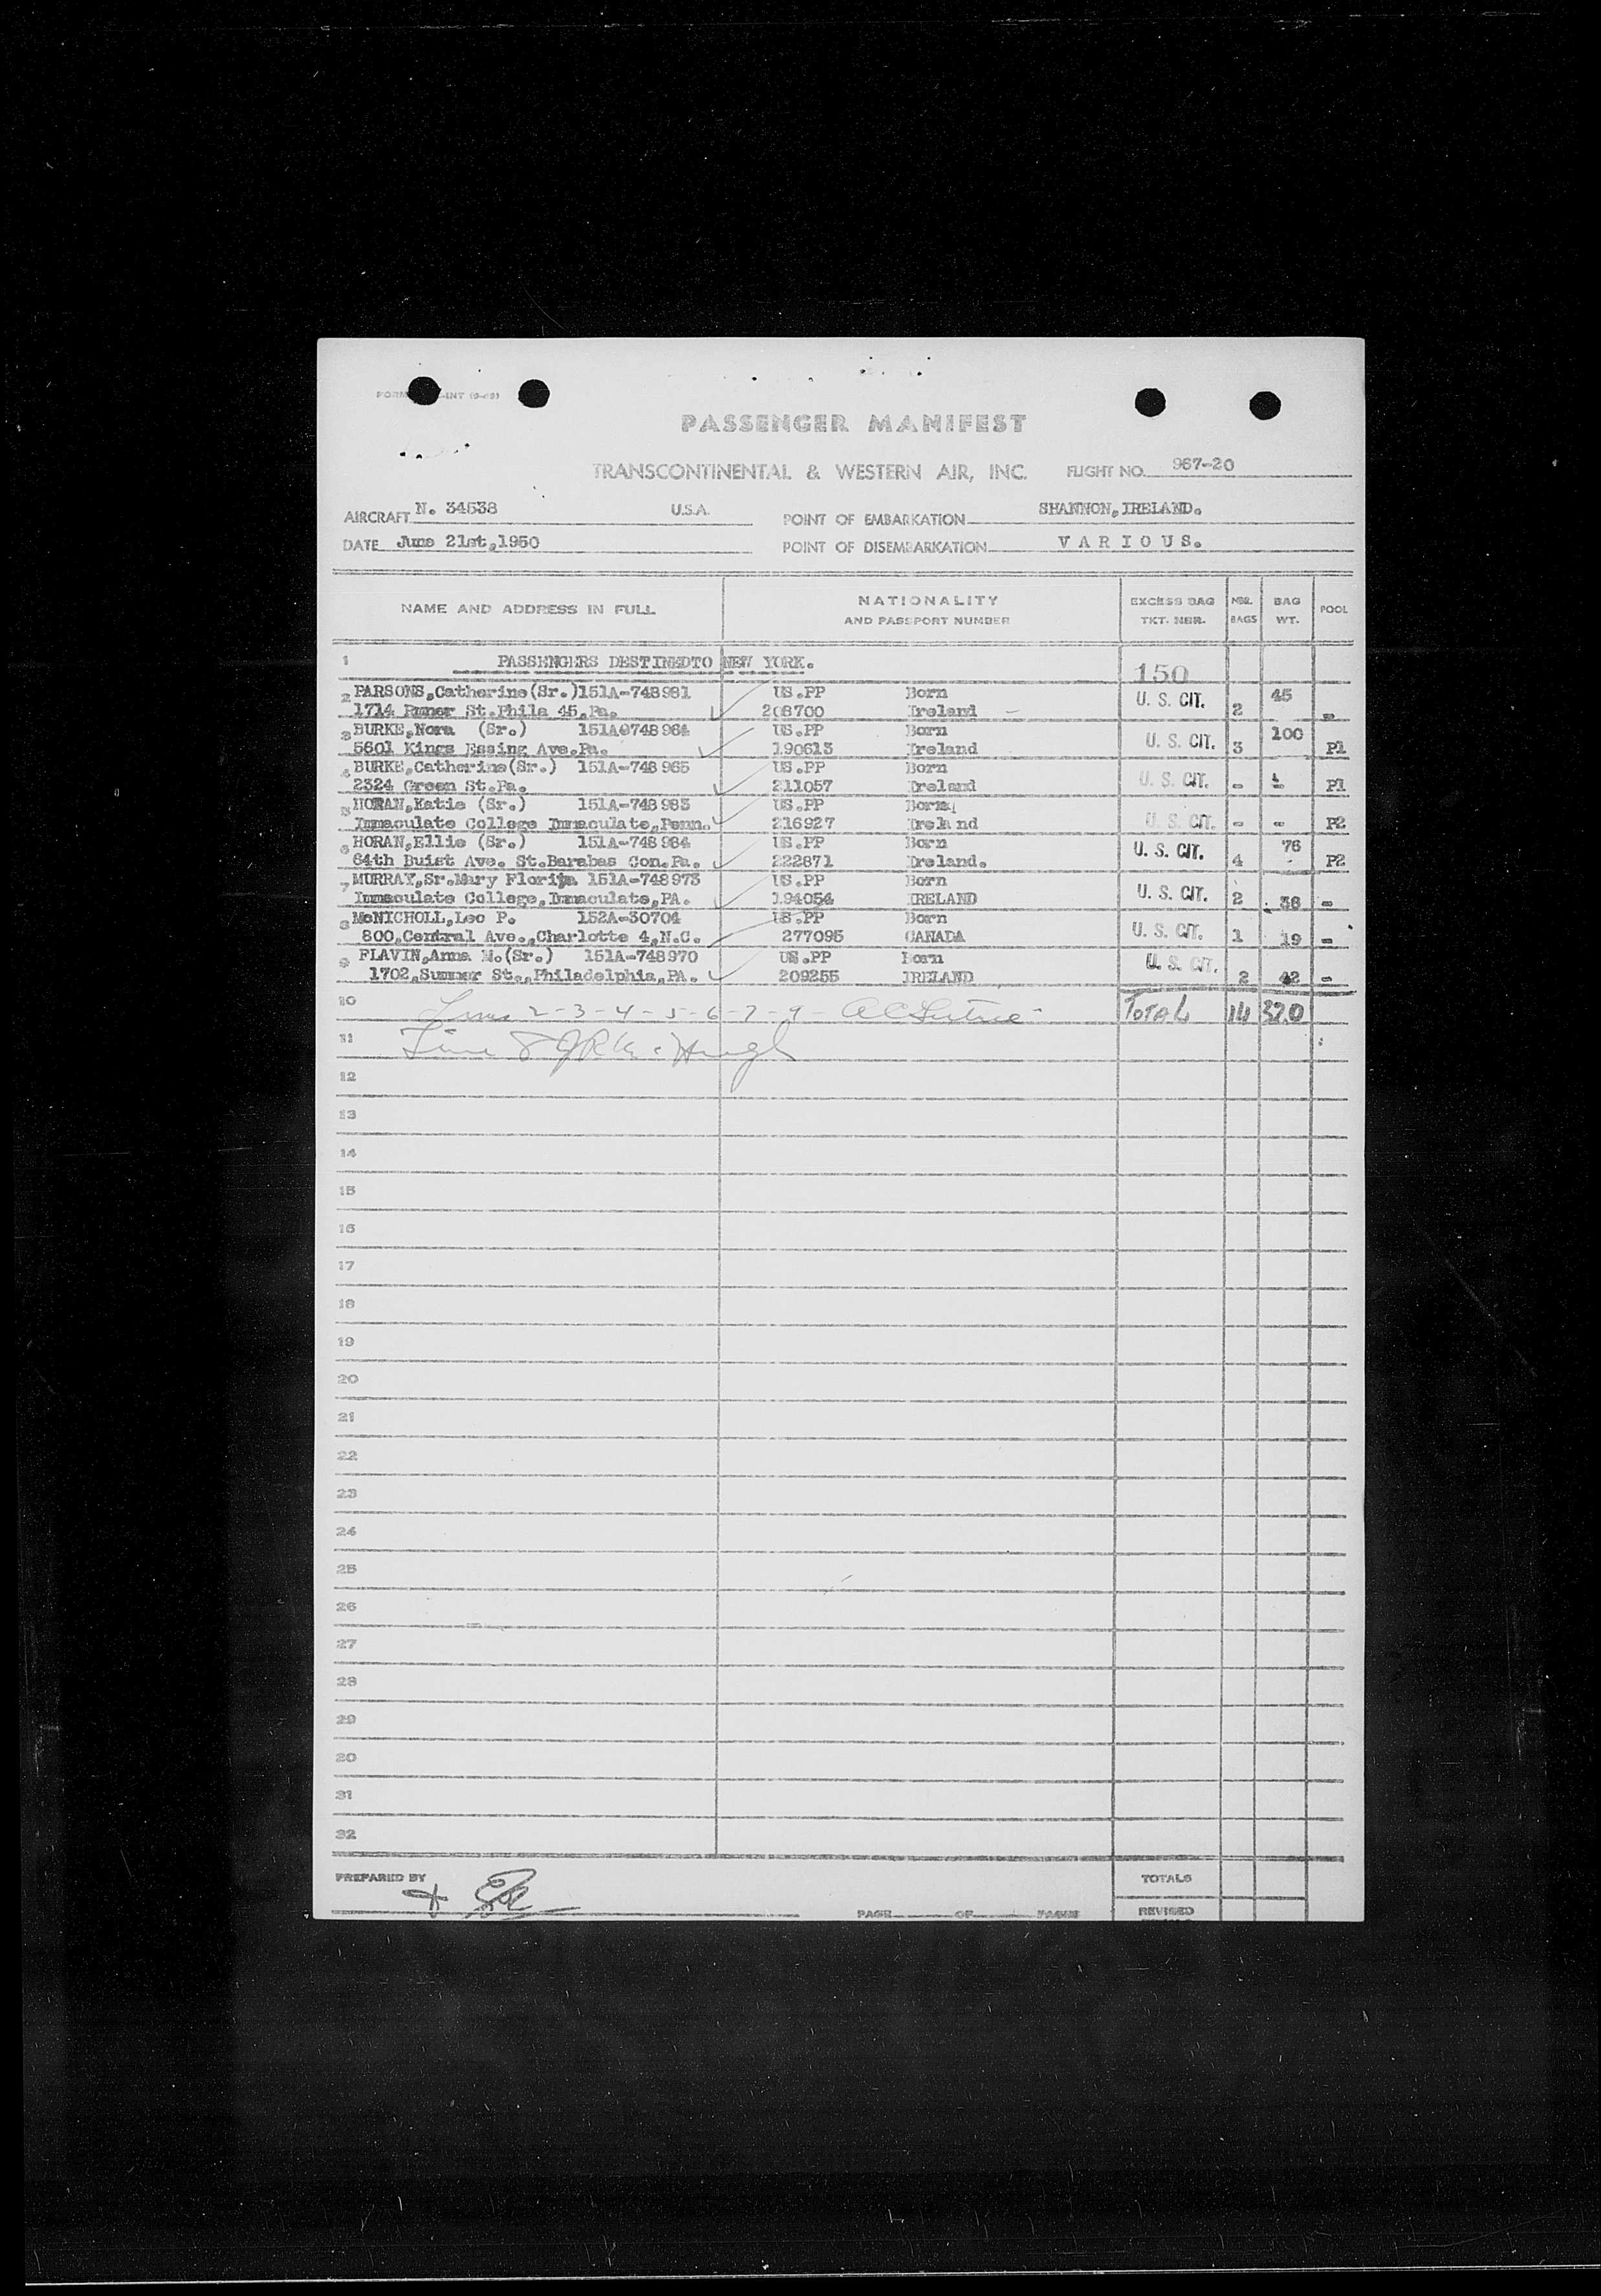 PASSENGER MANIFEST
TRANSCONTINENTAL & WESTERN AIR, INC. FLIGHT NO. 967-20
AIRCRAFT N. 34538 U.S.A. POINT OF EMBARKATION SHANNON, IRELAND.
DATE June 21st, 1950 POINT OF DISEMBARKATION V A R I O U S.
NAME AND ADDRESS IN FULL NATIONALITY AND PASSPORT NUMBER EXCESS BAG TKT. NBR. NBR. BAGS BAG WT. POOL
1 PASSENGERS DESTINEDTO NEW YORK. 150
2 PARSONS,Catherine(Sr.)151A-748981 US.PP Born U. S. CIT. 2 45
1714 St.Phila 45,Pa. 208700 Ireland -
3 BURKE,Nora (Sr.) 151A0748964 US.PP Born U. S. CIT. 3 100
5601 Kings Essing Ave.Pa. 190613 Ireland P1
4 BURKE,Catherine(Sr.) 151A-748965 US.PP Born U. S. CIT. - -
2324 Green St.Pa. 211057 Ireland P1
5 HORAN,Katie (Sr.) 151A-748983 US.PP Born U. S. CIT. - -
Immaculate College Immaculate,Penn. 216927 Irela nd P2
6 HORAN,Ellie (Sr.) 151A-748984 US.PP Born U. S. CIT. 4 76
64th Buist Ave. St.Barabas Con.Pa. 222871 Ireland. P2
7 MURRAY,Sr.Mary 151A-748973 US.PP Born U. S. CIT. 2 38 -
Immaculate College,Immaculate,PA. 194054 IRELAND
8 McNICHOLL,Leo P. 152A-30704 US.PP Born U. S. CIT. 1 19 -
800,Central Ave.,Charlotte 4,N.C. 277095 CANADA
9 FLAVIN,Anna M.(Sr.) 151A-748970 US.PP Born U. S. CIT. 2 42 -
1702,Summer St.,Philadelphia,PA. 209255 IRELAND
10 Lines 2-3-4-5-6-7-9- TOTAL 14 320
11 Line 8
12
13
14
15
16
17
18
19
20
21
22
23
24
25
26
27
28
29
30
31
32
PREPARED BY TOTALS
PAGE OF PAGES REVISED